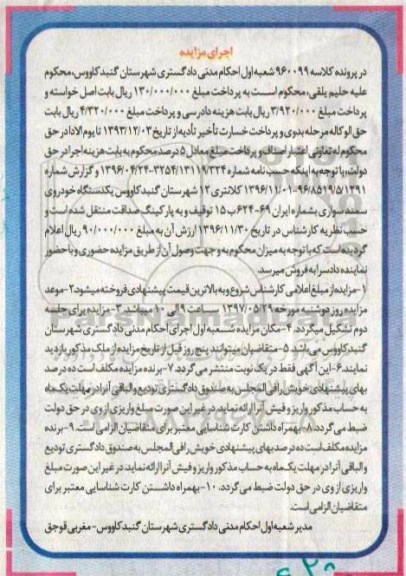 اجرای مزایده
در پرونده کلاسه ۹۶۰۰۹۹ شعبه اول احکام مدنی دادگستری شهرستان گنبدکاووس، محکوم
علیه حلیم یلقی، محکوم است به پرداخت مبلغ ۱۳۰/۰۰۰/۰۰۰ ریال بابت اصل خواسته و
پرداخت مبلغ ۳/۹۲۰/۰۰۰ ریال بابت هزینه دادرسی و پرداخت مبلغ ۴/۳۲۰/۰۰۰ ریال بابت
حق الوکاله مرحله بدوی و پرداخت خسارت تأخیر تأدیه از تاریخ ۱۳۹۳/۱۲/۰۳ تا یوم الادا در حق
محکوم له تعاونی اعتبار اصناف و پرداخت مبلغ معادل ۵ درصد محکوم به بابت هزینه اجرا در حق
دولت، با توجه به اینکه حسب نامه شماره ۳۲۵۴/۱۳۱۱۹/۳۲۴-۱۳۹۶/۰۴/۲۴ و گزارش شماره
۹۶/۸۵۱۹/۵/۱۳۹۱-۱۳۹۶/۱۱/۰۱ کلانتری ۱۲ شهرستان گنبدکاووس یکدستگاه خودروی
سمند سواری بشماره ایران ۶۹-۶۲۴ب۱۵ توقیف و به پارکینگ صداقت منتقل شده است و
حسب نظریه کارشناس در تاریخ ۱۳۹۶/۱۱/۳۰ ارزش آن به مبلغ ۹۰/۰۰۰/۰۰۰ ریال اعلام
گردیده است که با توجه به میزان محکوم به و جهت وصول آن از طریق مزایده حضوری و با حضور
نماینده دادسرا به فروش میرسد.
۱-مزایده از مبلغ اعلامی کارشناس شروع و به بالاترین قیمت پیشنهادی فروخته میشود ۲-موعد
مزایده روز دوشنبه مورخه ۱۳۹۷/۰۵/۲۹ ساعت ۹ الی ۱۰ میباشد. ۳-مزایده برای جلسه
دوم تشکیل میگردد. ۴-مکان مزایده شعبه اول اجرای احکام مدنی دادگستری شهرستان
گنبدکاووس می باشد ۵-متقاضیان میتوانند پنج روز قبل از تاریخ مزایده از ملک مذکور بازدید
نمایند. ۶-این آگهی فقط در یک نوبت منتشر می گردد. ۷-برنده مزایده مکلف است ده درصد
بهای پیشنهادی خویش را فی المجلس به صندوق دادگستری تودیع و الباقی آنرا در مهلت یک ماه
به حساب مذکور واریز و فیش آنرا ارائه نماید در غیر این صورت مبلغ واریزی از وی در حق دولت
ضبط می گردد. ۸-بهمراه داشتن کارت شناسایی معتبر برای متقاضیان الزامی است. ۹-برنده
مزایده مکلف است ده درصد بهای پیشنهادی خویش را فی المجلس به صندوق دادگستری تودیع
و الباقی آنرا در مهلت یکماه به حساب مذکور واریز و فیش آنرا ارائه نماید در غیر این صورت مبلغ
واریزی از وی در حق دولت ضبط می گردد. ۱۰-بهمراه داشتن کارت شناسایی معتبر برای
متقاضیان الزامی است.
مدیر شعبه اول احکام مدنی دادگستری شهرستان گنبد کاووس- مغربی قوجق